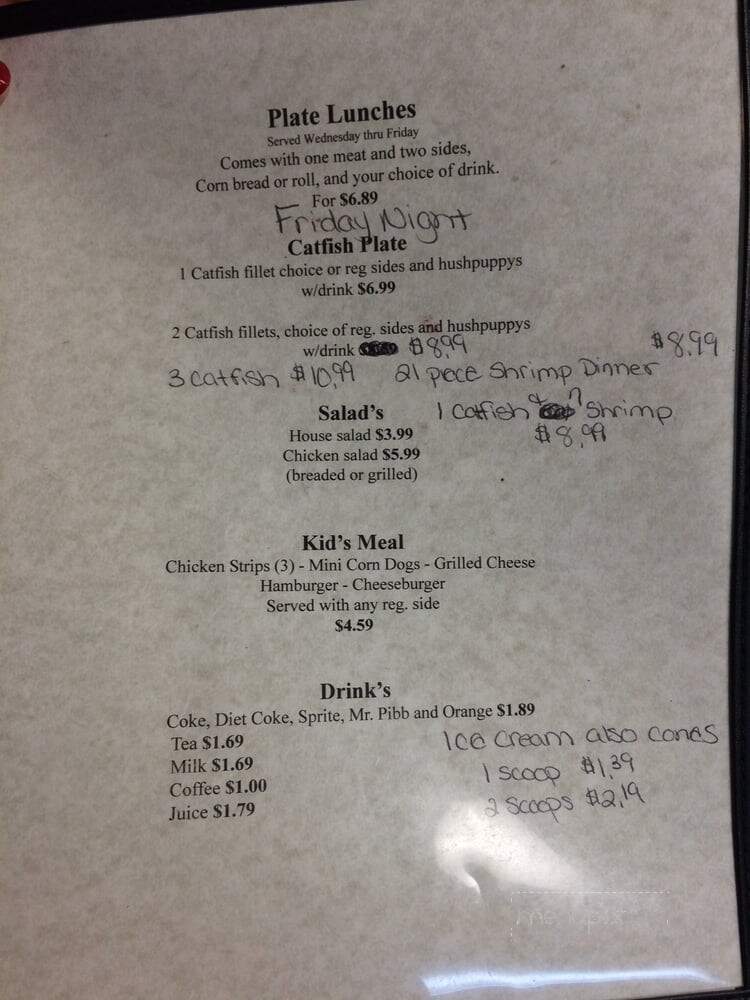 Plate Lunches
Served Wednesday thru Friday
Comes with one meat and two sides,
Corn bread or roll, and your choice of drink.
For $6.89
Friday Night
Catfish Plate
1 Catfish fillet choice or reg sides and hushpuppys
w/drink $6.99
2 Catfish fillets, choice of reg. sides and hushpuppys
w/drink $8.99
$8.99
3 catfish $10.99 21 piece Shrimp Dinner
Salad's
1 catfish & 7 Shrimp
$8.99
House salad $3.99
Chicken salad $5.99
(breaded or grilled)
Kid's Meal
Chicken Strips (3) - Mini Corn Dogs - Grilled Cheese
Hamburger - Cheeseburger
Served with any reg. side
$4.59
Drink's
Coke, Diet Coke, Sprite, Mr. Pibb and Orange $1.89
Tea $1.69
Milk $1.69
Coffee $1.00
Juice $1.79
Ice Cream also cones
1 scoop $1.39
2 Scoops $2.19